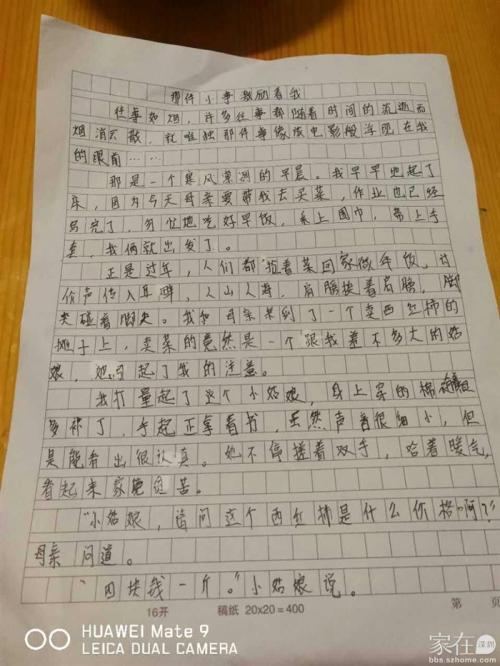 那件小事激励着我
往事如烟，许多往事都随着时间的流逝而
烟消云散，就唯独那件事像放电影般浮现在我
的眼前……
那是一个寒风凛冽的早晨。我早早地起了
床，因为今天母亲要带我去买菜，作业也已经
写完了，匆忙地吃好早饭，系上围巾，带上手
套，我俩就出发了。
正是过年，人们都抢着菜回家做年饭，讨
价声传入耳畔，人山人海，肩膀挨着肩膀，脚
尖碰着脚尖。我和母亲来到了一个卖西红柿的
摊子上，卖菜的竟然是一个跟我差不多大的姑
娘，她引起了我的注意。
我打量起了这个小姑娘，身上穿的棉
多补丁，手起正拿着书，虽然声音很细小，但
是能看出很认真。她不停搓着双手，哈着暖气，
看起来家境贫苦。
“小姑娘，请问这个西红柿是什么价格啊？”
母亲问道。
“四块钱一斤。”小姑娘说。
16开 稿纸 20x20=400 第 页
HUAWEI Mate 9
LEICA DUAL CAMERA
家在深圳
bbs.szhome.com